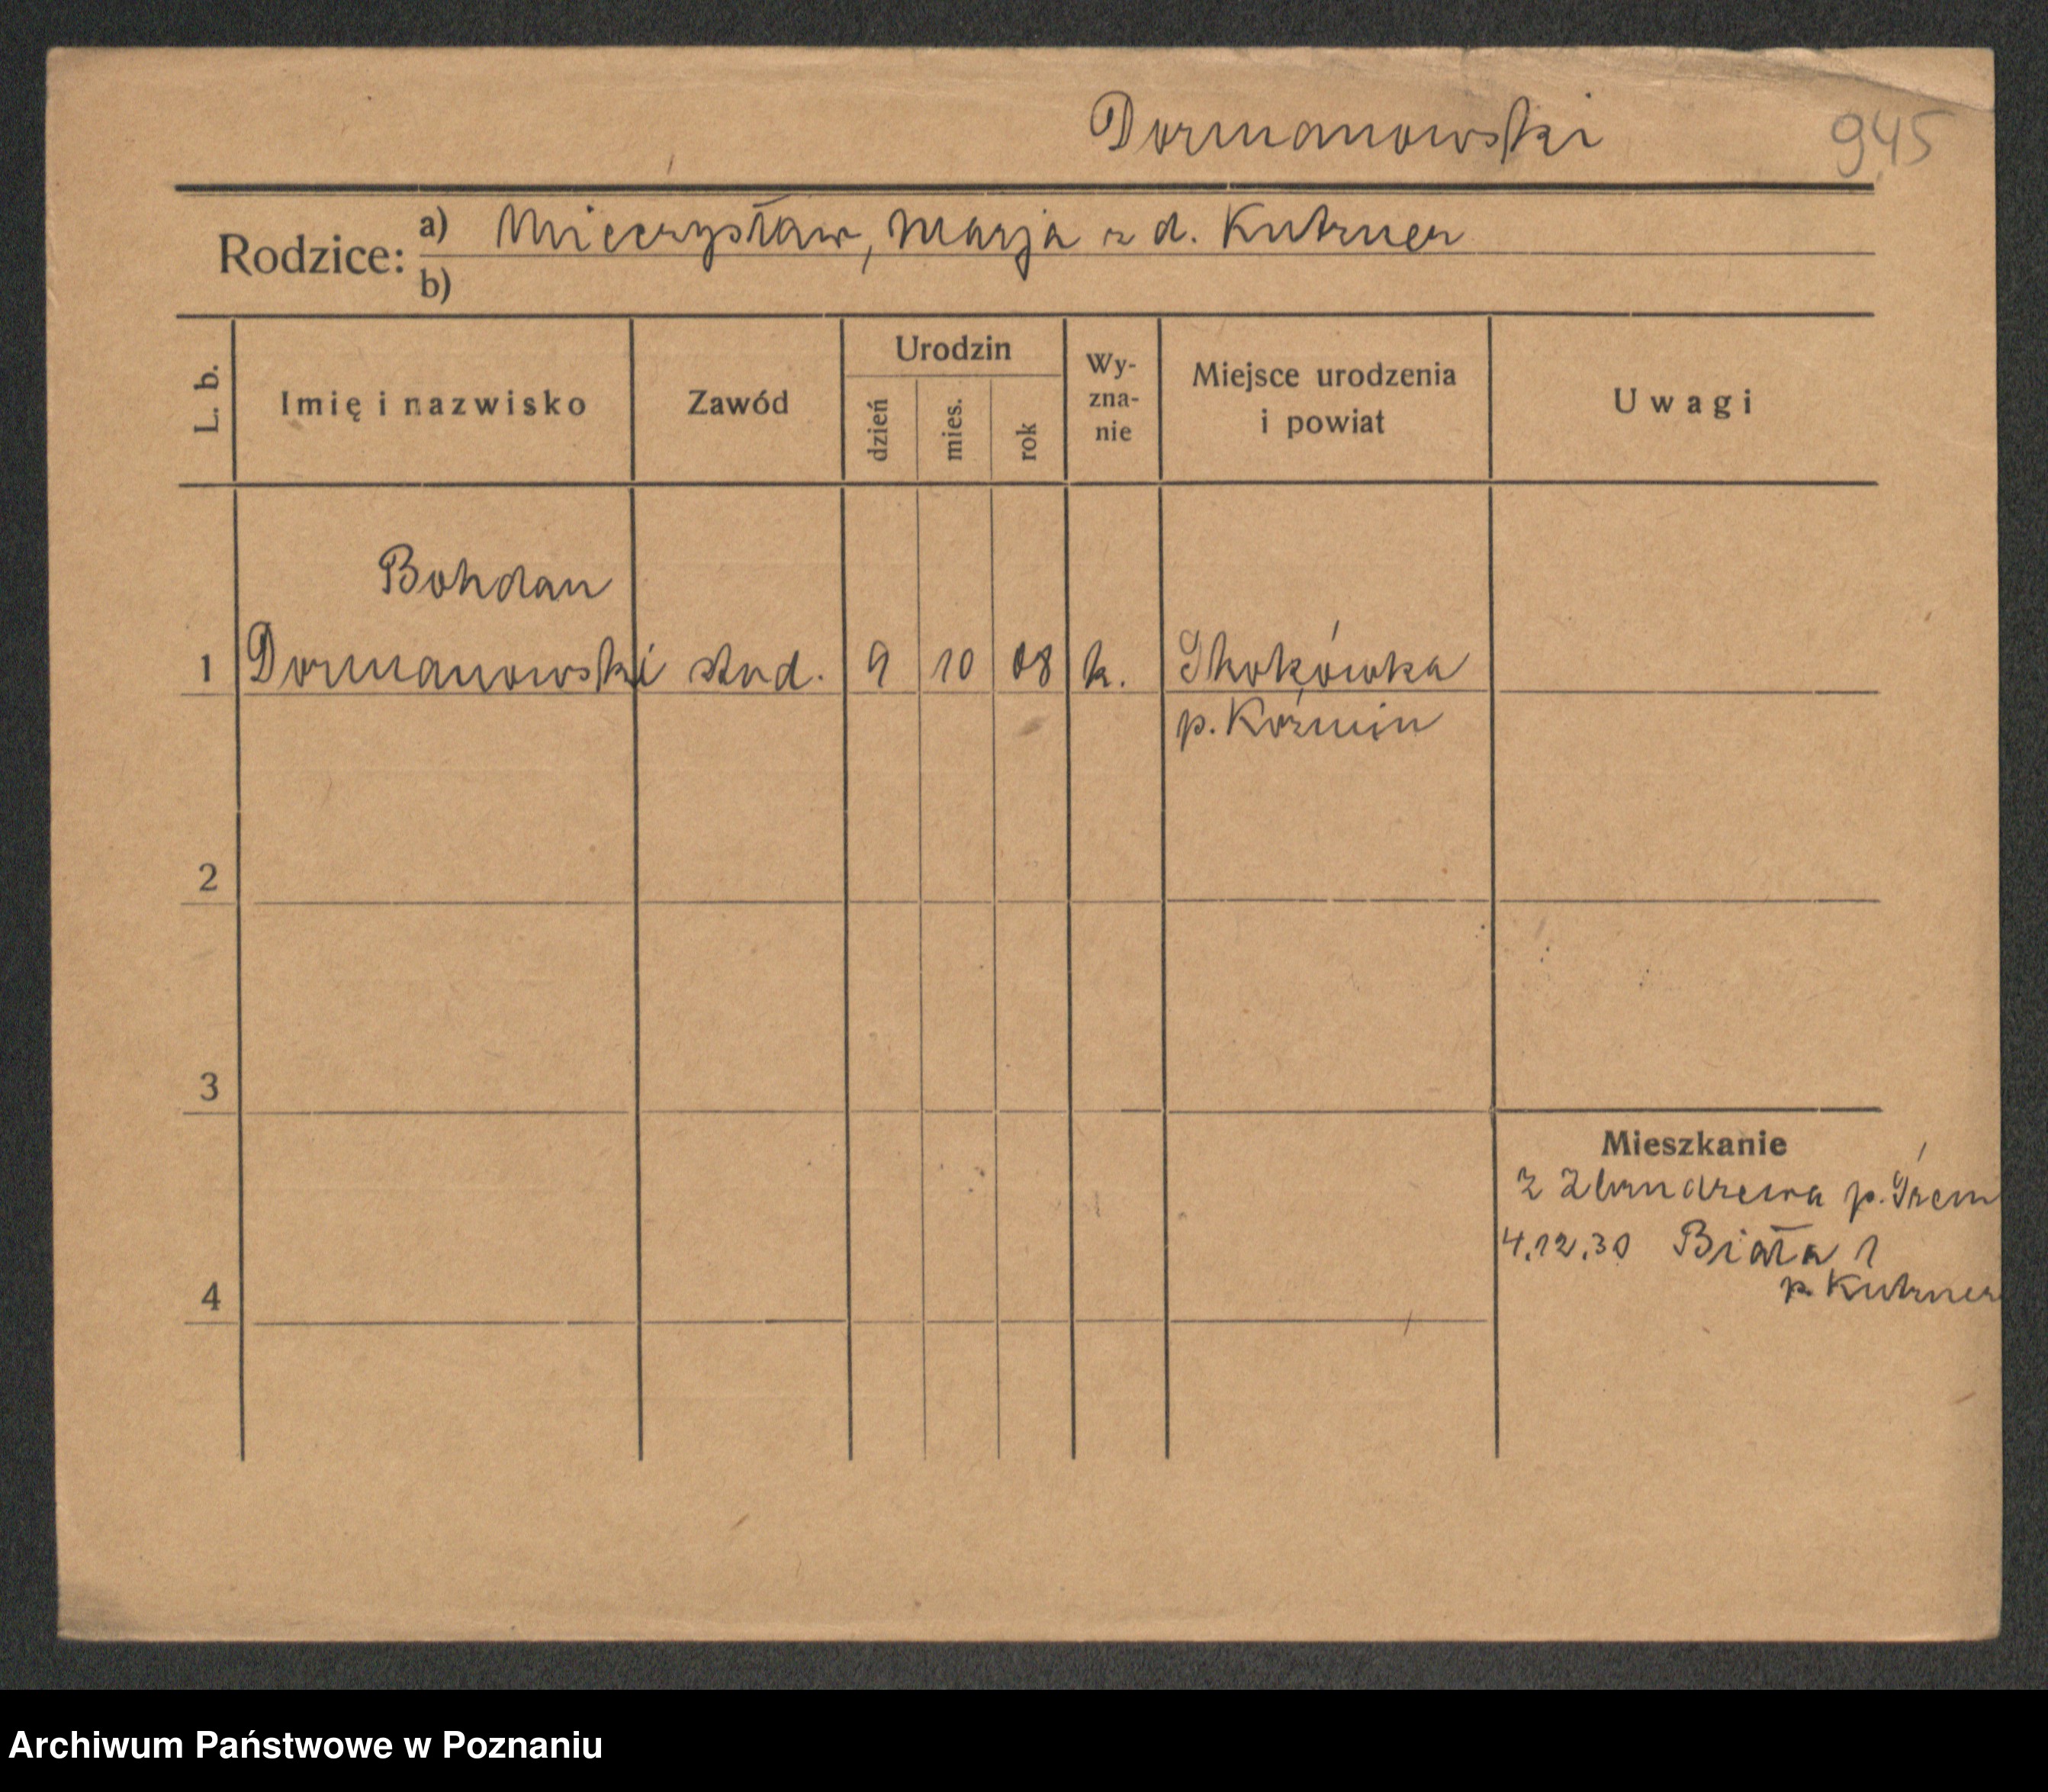 Dormanowski 945
Rodzice: a) Mieczysław, Marja z d. Kutzner
b)
L. b. Imię i nazwisko Zawód Urodzin dzień mies. rok Wy-zna-nie Miejsce urodzenia i powiat Uwagi
Bohdan
1 Dormanowski stud. 9 10 08 k. Skokówka
p. Koźmin
2
3
Mieszkanie
z p. Śrem
4.12.30 Biała 1
4 p. Kutzner
Archiwum Państwowe w Poznaniu